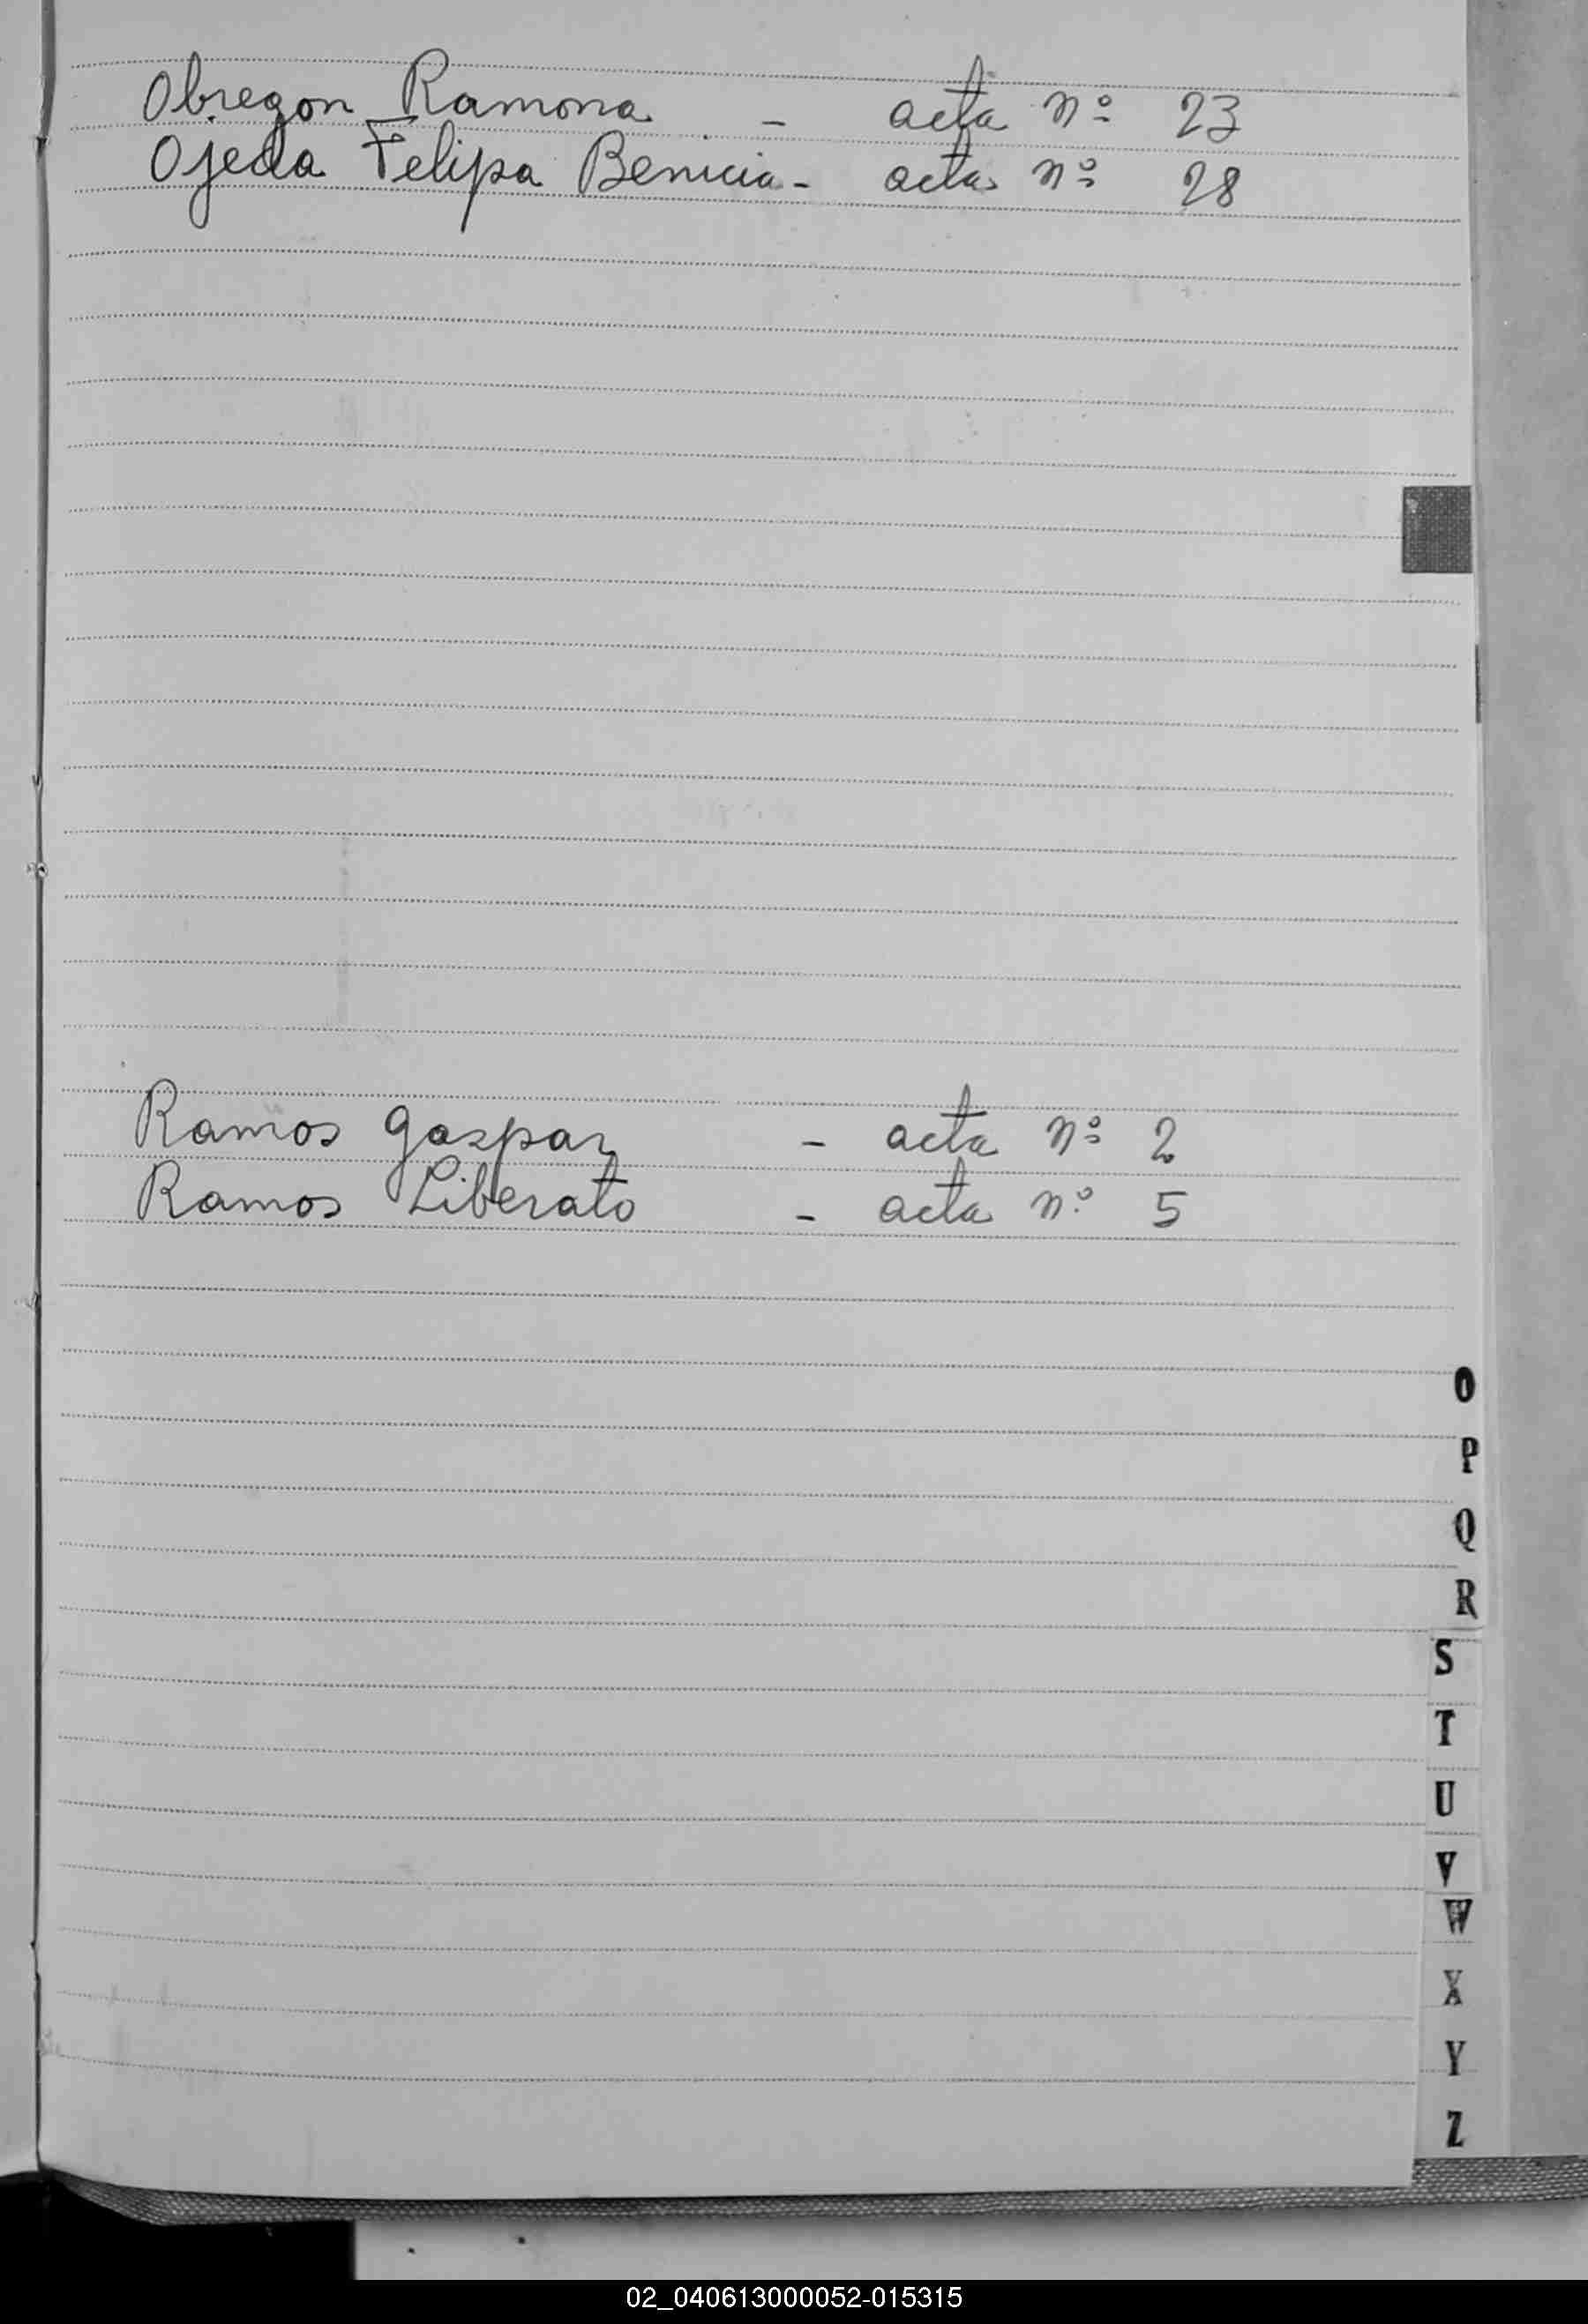 Obregon Ramona - acta nº 23
Ojeda Felipa Benicia - acta nº 28
Ramos Gaspar - acta nº 2
Ramos Liberato - acta nº 5
O
P
Q
R
S
T
U
V
W
X
Y
Z
02_040613000052-015315